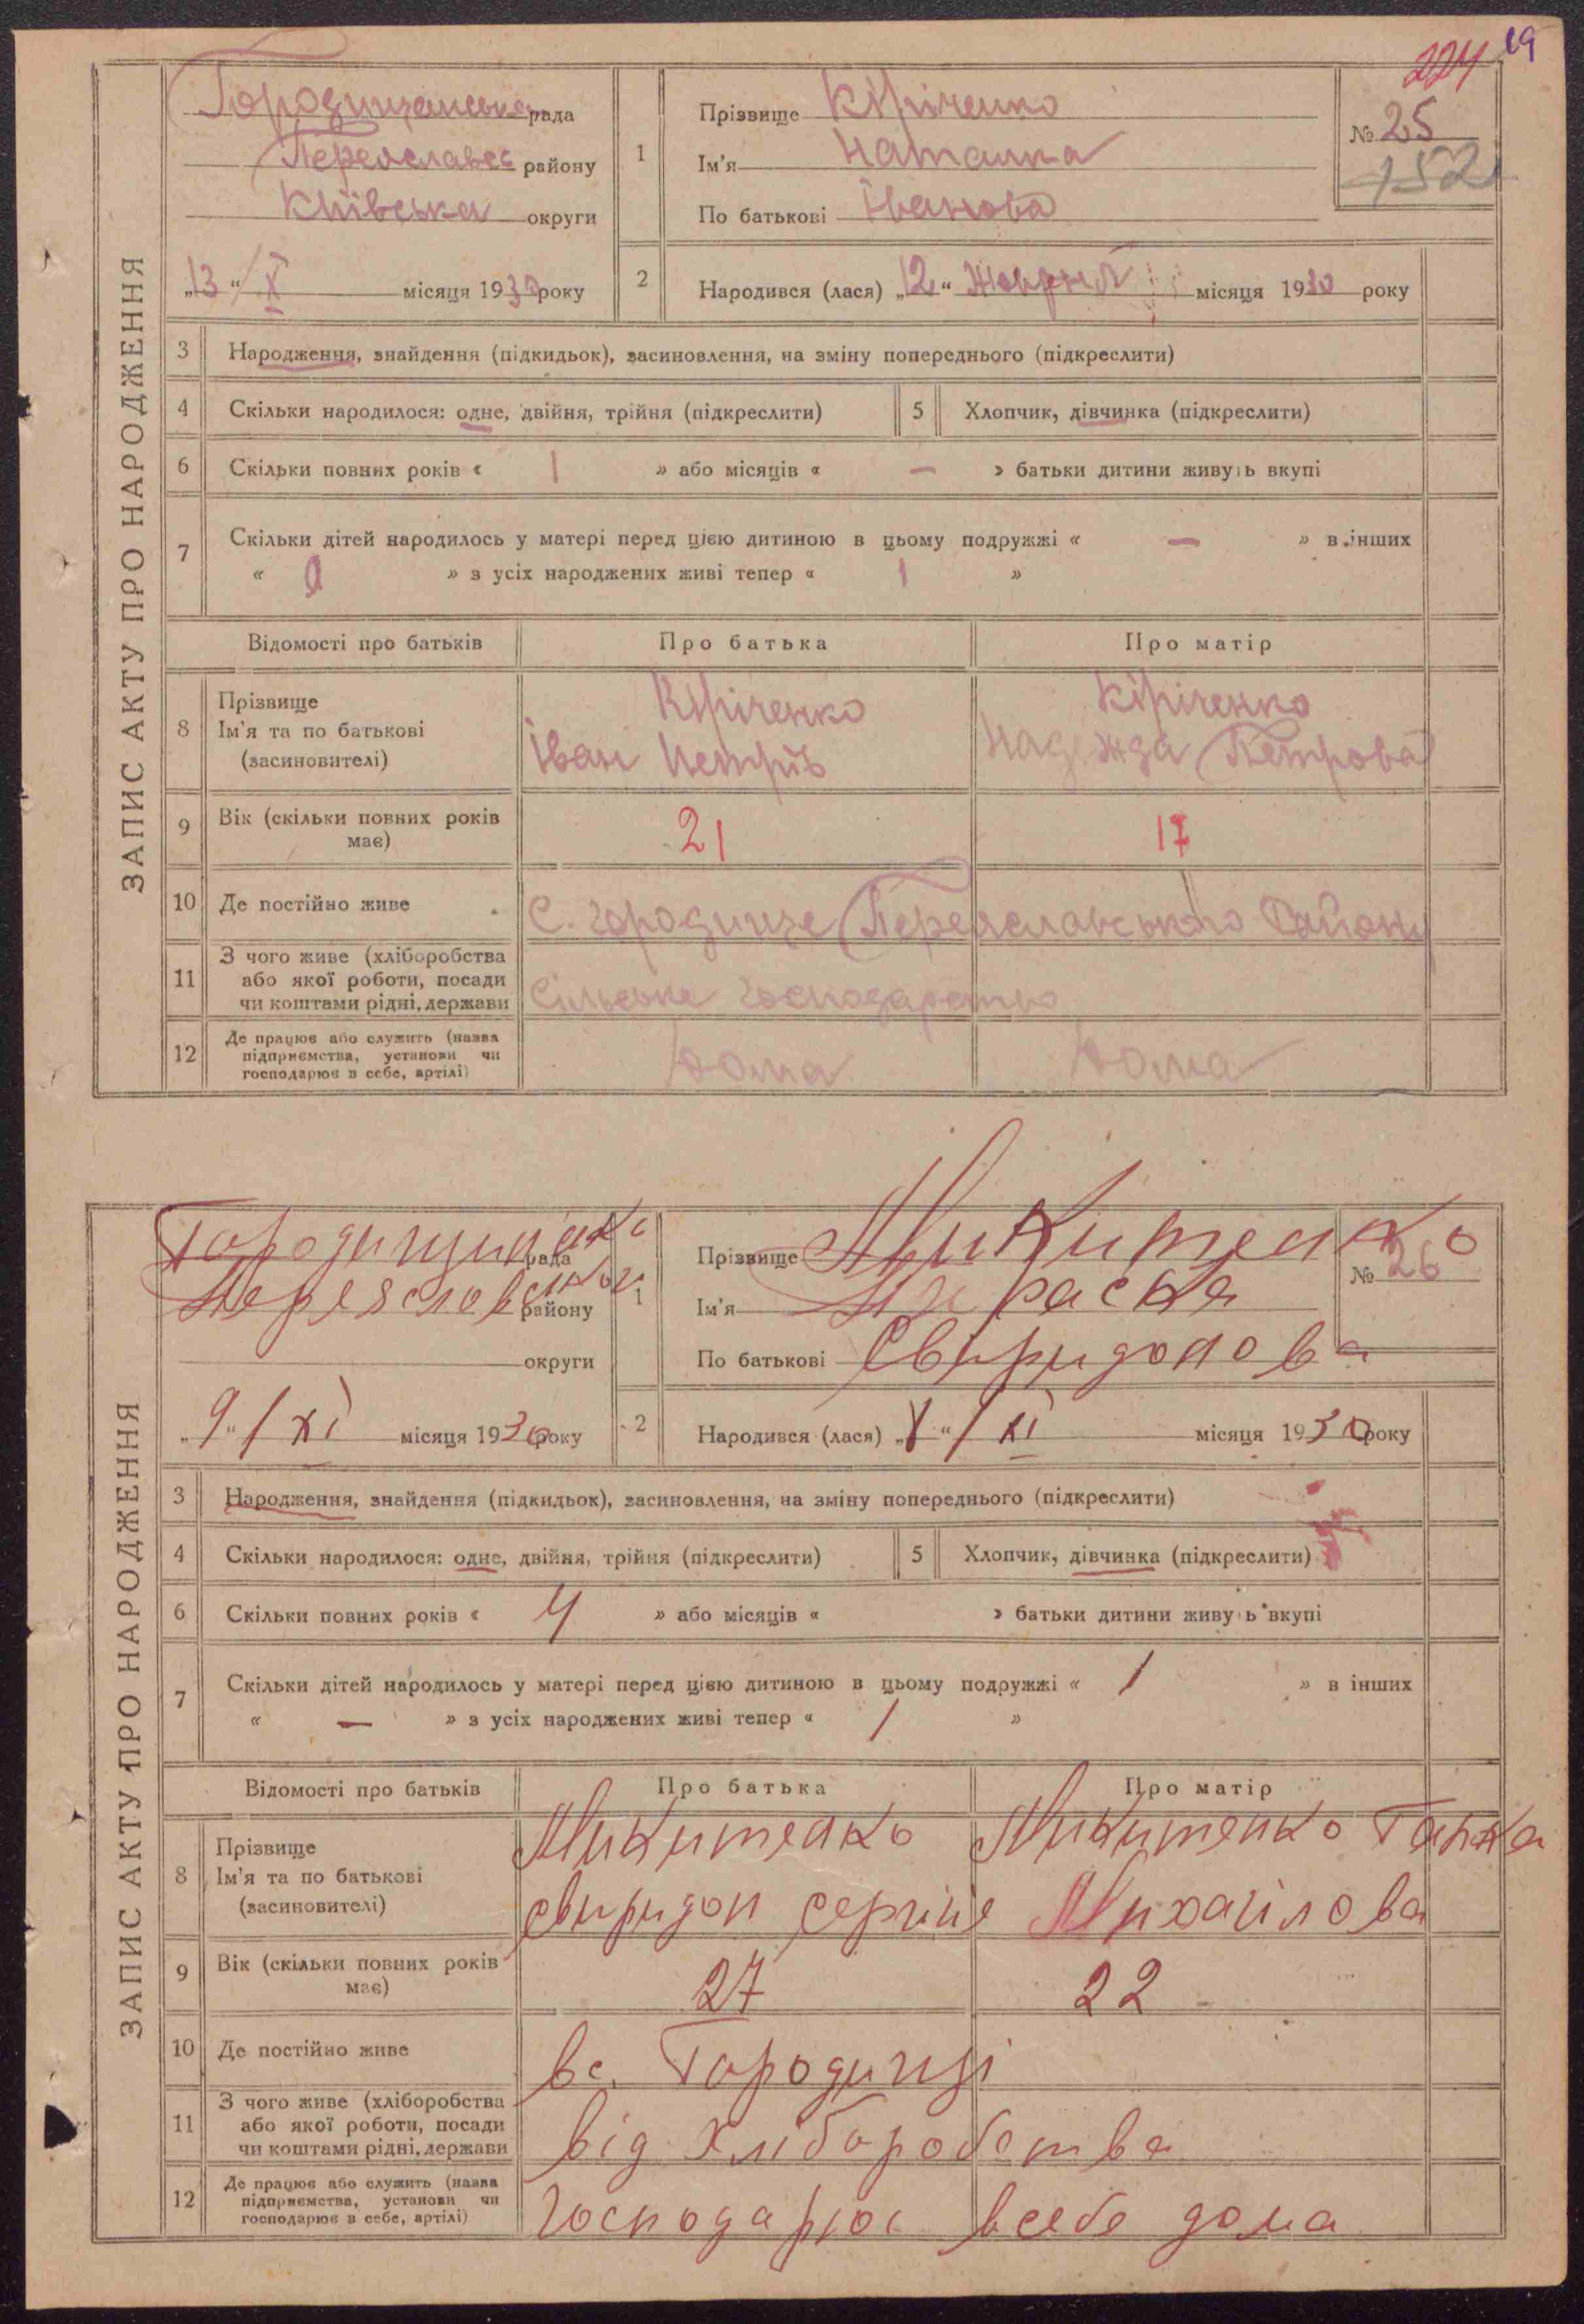 224 19
ЗАПИС АКТУ ПРО НАРОДЖЕННЯ
Городищенська рада
Переяславсь району
Київська округи
1
Прізвище Кіріченко
Ім'я Наталка
По батькові Іванова
№ 25
152
„13“ X місяця 1930 року
2
Народився (лася) „12“ Жовтня місяця 1930 року
3 Народження, знайдення (підкидьок), засиновлення, на зміну попереднього (підкреслити)
4 Скільки народилося: одне, двійня, трійня (підкреслити) 5 Хлопчик, дівчинка (підкреслити)
6 Скільки повних років « 1 » або місяців « — » батьки дитини живуть вкупі
7 Скільки дітей народилось у матері перед цією дитиною в цьому подружжі « — » в інших
« » з усіх народжених живі тепер « 1 »
Відомості про батьків Про батька Про матір
8 Прізвище Ім'я та по батькові (засиновителі)
Кіріченко Іван Петрів
Кіріченко Надежда Петрова
9 Вік (скільки повних років має) 21 17
10 Де постійно живе С. Городище Переяславського Району
11 З чого живе (хліборобства або якої роботи, посади чи коштами рідні, держави Сільське господарство
12 Де працює або служить (назва підприємства, установи чи господарює в себе, артілі) Дома Дома
ЗАПИС АКТУ ПРО НАРОДЖЕННЯ
рада
району
округи
1
Прізвище Микитенко
Ім'я Параска
По батькові Свиридонова
№ 26
„9“ / XI місяця 1930 року
2
Народився (лася) „ “ / XI місяця 1930 року
3 Народження, знайдення (підкидьок), засиновлення, на зміну попереднього (підкреслити)
4 Скільки народилося: одне, двійня, трійня (підкреслити) 5 Хлопчик, дівчинка (підкреслити)
6 Скільки повних років « 4 » або місяців « » батьки дитини живуть вкупі
7 Скільки дітей народилось у матері перед цією дитиною в цьому подружжі « 1 » в інших
« — » з усіх народжених живі тепер « 1 »
Відомості про батьків Про батька Про матір
8 Прізвище Ім'я та по батькові (засиновителі)
Микитенко свиридон
Микитенко Ганна Михайлова
9 Вік (скільки повних років має) 27 22
10 Де постійно живе вс. Городищі
11 З чого живе (хліборобства або якої роботи, посади чи коштами рідні, держави від хліборобства
12 Де працює або служить (назва підприємства, установи чи господарює в себе, артілі) Господарює всебе дома